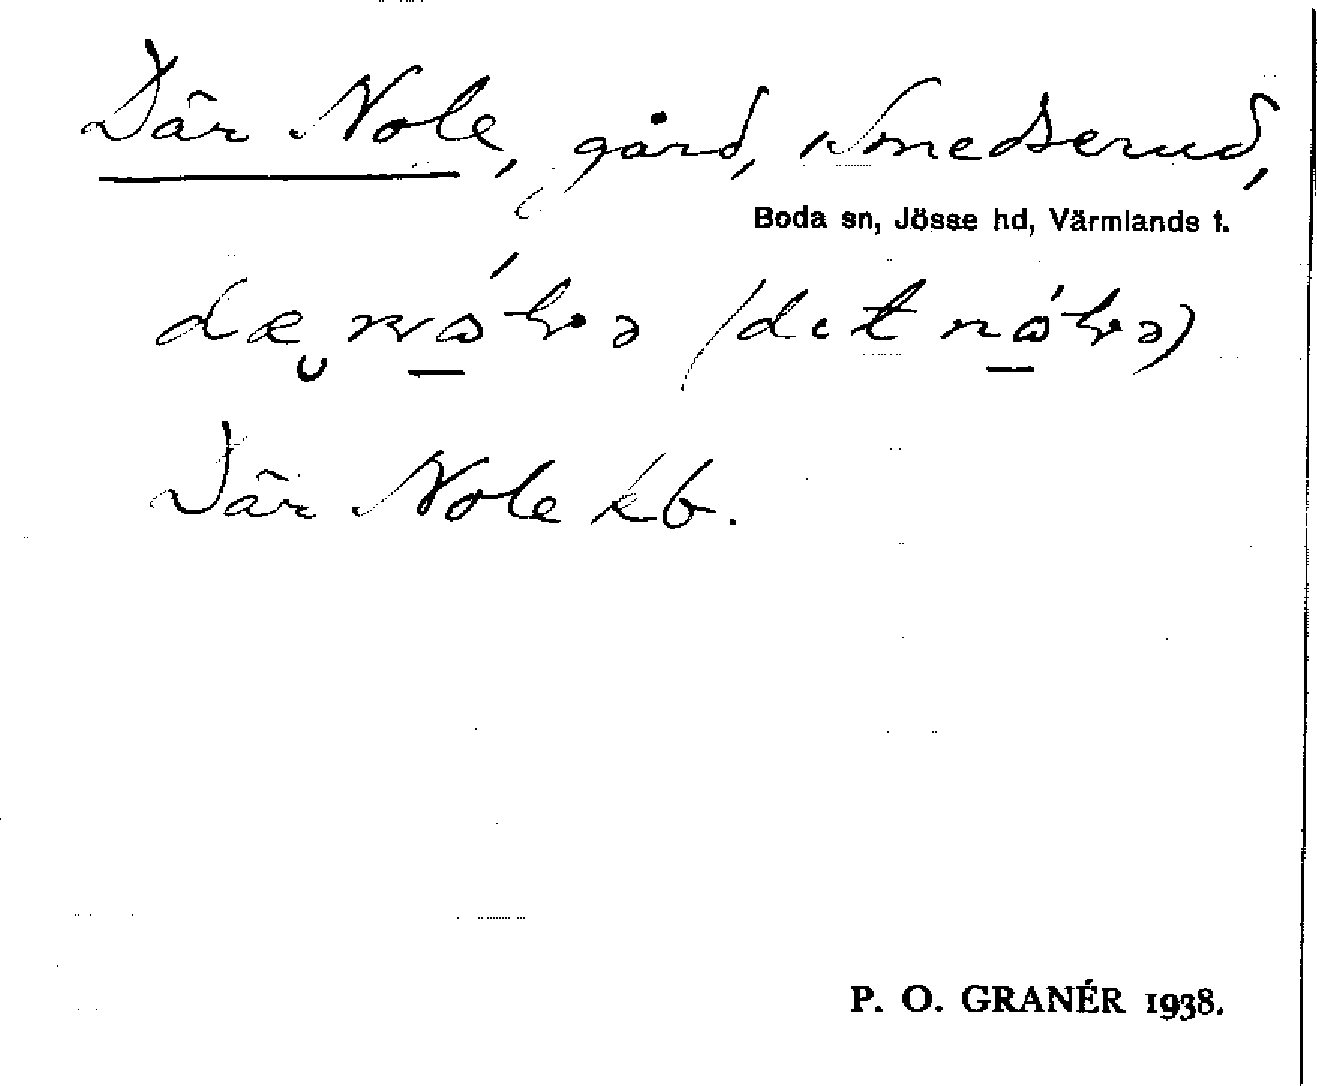 Där Nole, gård, Smedserud,
Boda sn, Jösse hd, Värmlands l.
(det
Där Nole kb.
P. O. GRANÉR 1938.